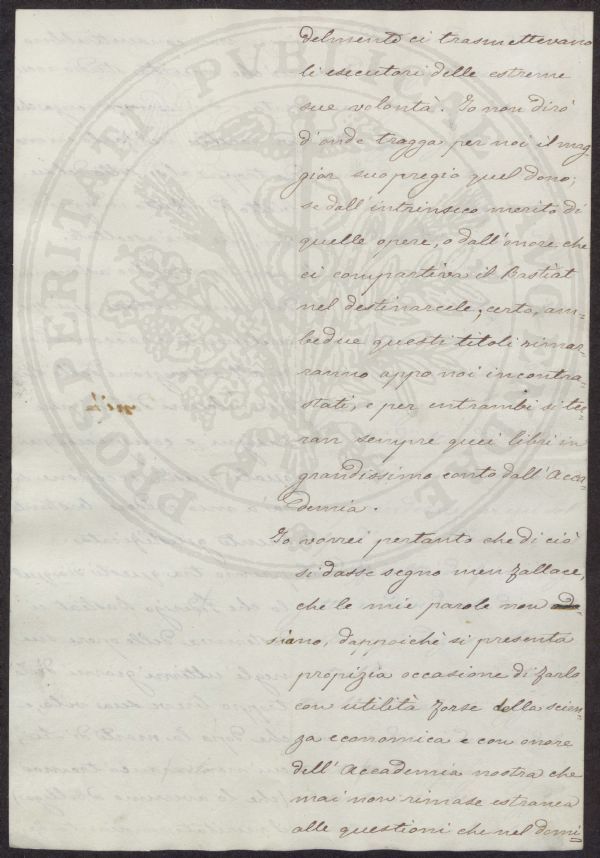 delmente ci trasmettevano
li esecutori delle estreme
sue volontà. Io non dirò
d'onde tragga per noi il mag=
gior suo pregio quel dono;
se dall'intrinseco merito di
quelle opere, o dall'onore che
ci compartiva il Bastiat
nel destinarcele, certo, am=
bedue questi titoli rimar=
ranno appo noi incontra=
stati, e per entrambi si ter=
ran sempre quei libri in
grandissimo conto dall'Acca=
demia.
Io vorrei pertanto che di ciò
si dasse segno men fallace,
che le mie parole non
siano, dappoichè si presenta
propizia occasione di farlo
con utilità forse della scien=
za economica e con onore
dell'Accademia nostra che
mai non rimase estranea
alle questioni che nel domi=
PROSPERITATI PUBLICAE AUGENDAE